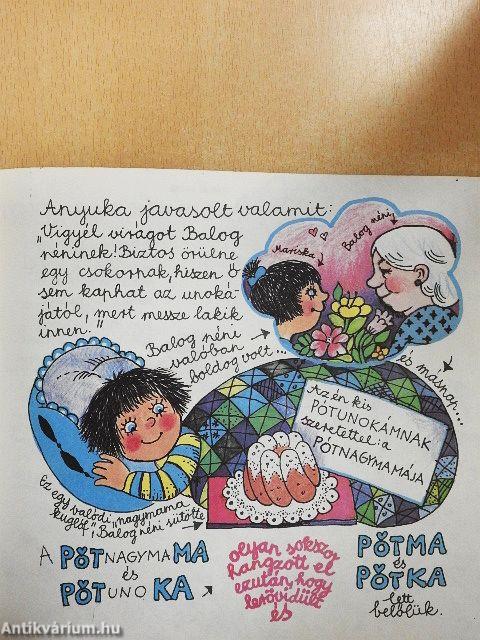 Anyuka javasolt valamit:
"Vigyél virágot Balog
néninek! Biztos örülne
egy csokornak, hiszen ő
sem kaphat az unoká-
jától, mert messze lakik
innen."
Mariska
Balog néni
Balog néni
valóban
boldog volt...
és másnap...
Az én kis
PÓTUNOKÁMNAK
szeretettel: a
PÓTNAGYMAMÁJA
Ez egy valódi „nagymama
kuglóf", Balog néni sütötte
A PÓTNAGYMAMA
és
PÓTUNOKA
olyan sokszor
hangzott el
ezután, hogy
lerövidült
és
PÓTMA
és
PÓTKA
lett
belőlük.
Antikvárium.hu